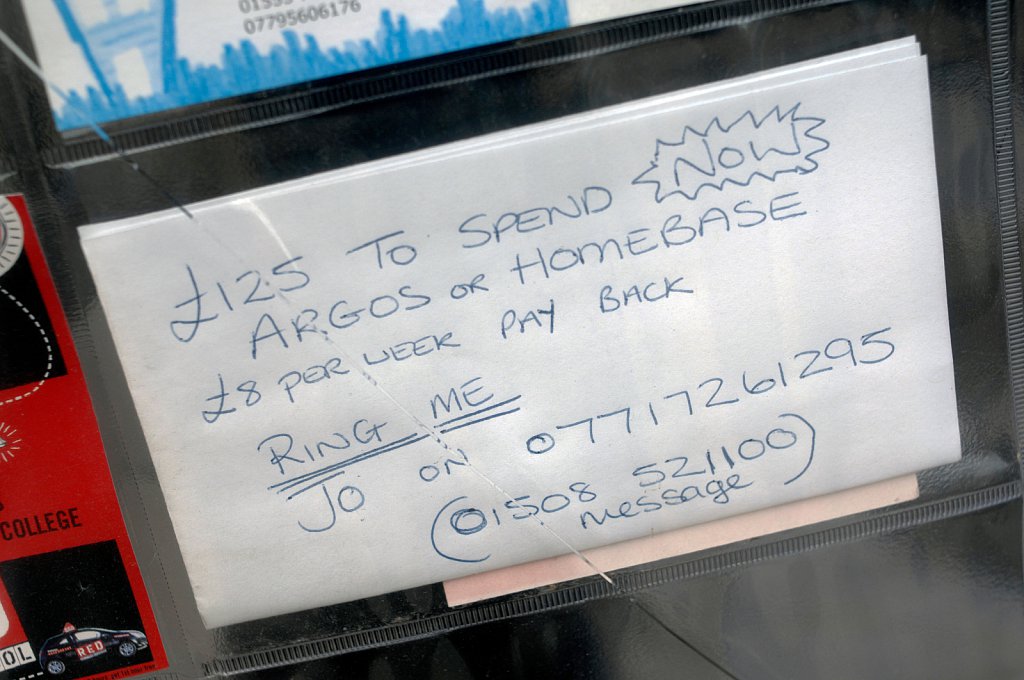 07795606176
£125 TO SPEND NOW
ARGOS OR HOMEBASE
£8 PER WEEK PAY BACK
RING ME
JO ON 07717261295
(01508 521100)
message
COLLEGE
OL
RED